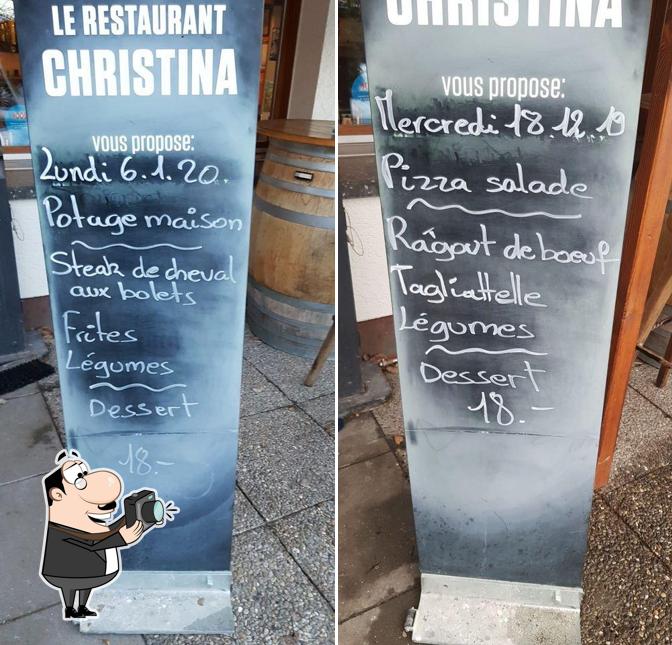 LE RESTAURANT
CHRISTINA
vous propose:
Lundi 6.1.20.
Potage maison
Steak de cheval
aux bolets
Frites
Légumes
Dessert
18.-
CHRISTINA
vous propose:
Mercredi 18.12.19
Pizza salade
Râgout de boeuf
Tagliattelle
Légumes
Dessert
18.-